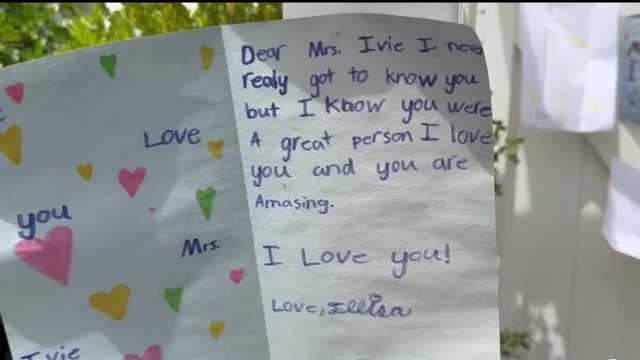 Love
you
Mrs.
Ivie
Dear Mrs. Ivie I never
realy got to know you
but I know you were
A great person I love
you and you are
Amasing.
I Love you!
Love,